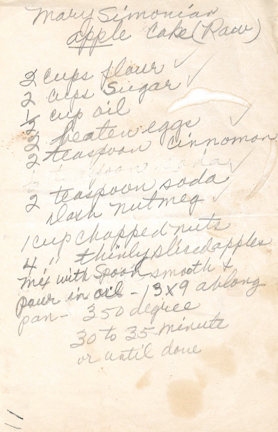 Mary Simonian
apple Cake (Raw)
2 cups flour
2 cups Sugar
1/2 cup oil
2 beaten eggs
2 teaspoon cinnamon
2 teaspoon soda
Dash nutmeg
1 cup chopped nuts
4 " thinly sliced apples
mix with Spoon smooth &
pour in oil - 13x9 oblong
pan - 350 degree
30 to 35 minute
or until done